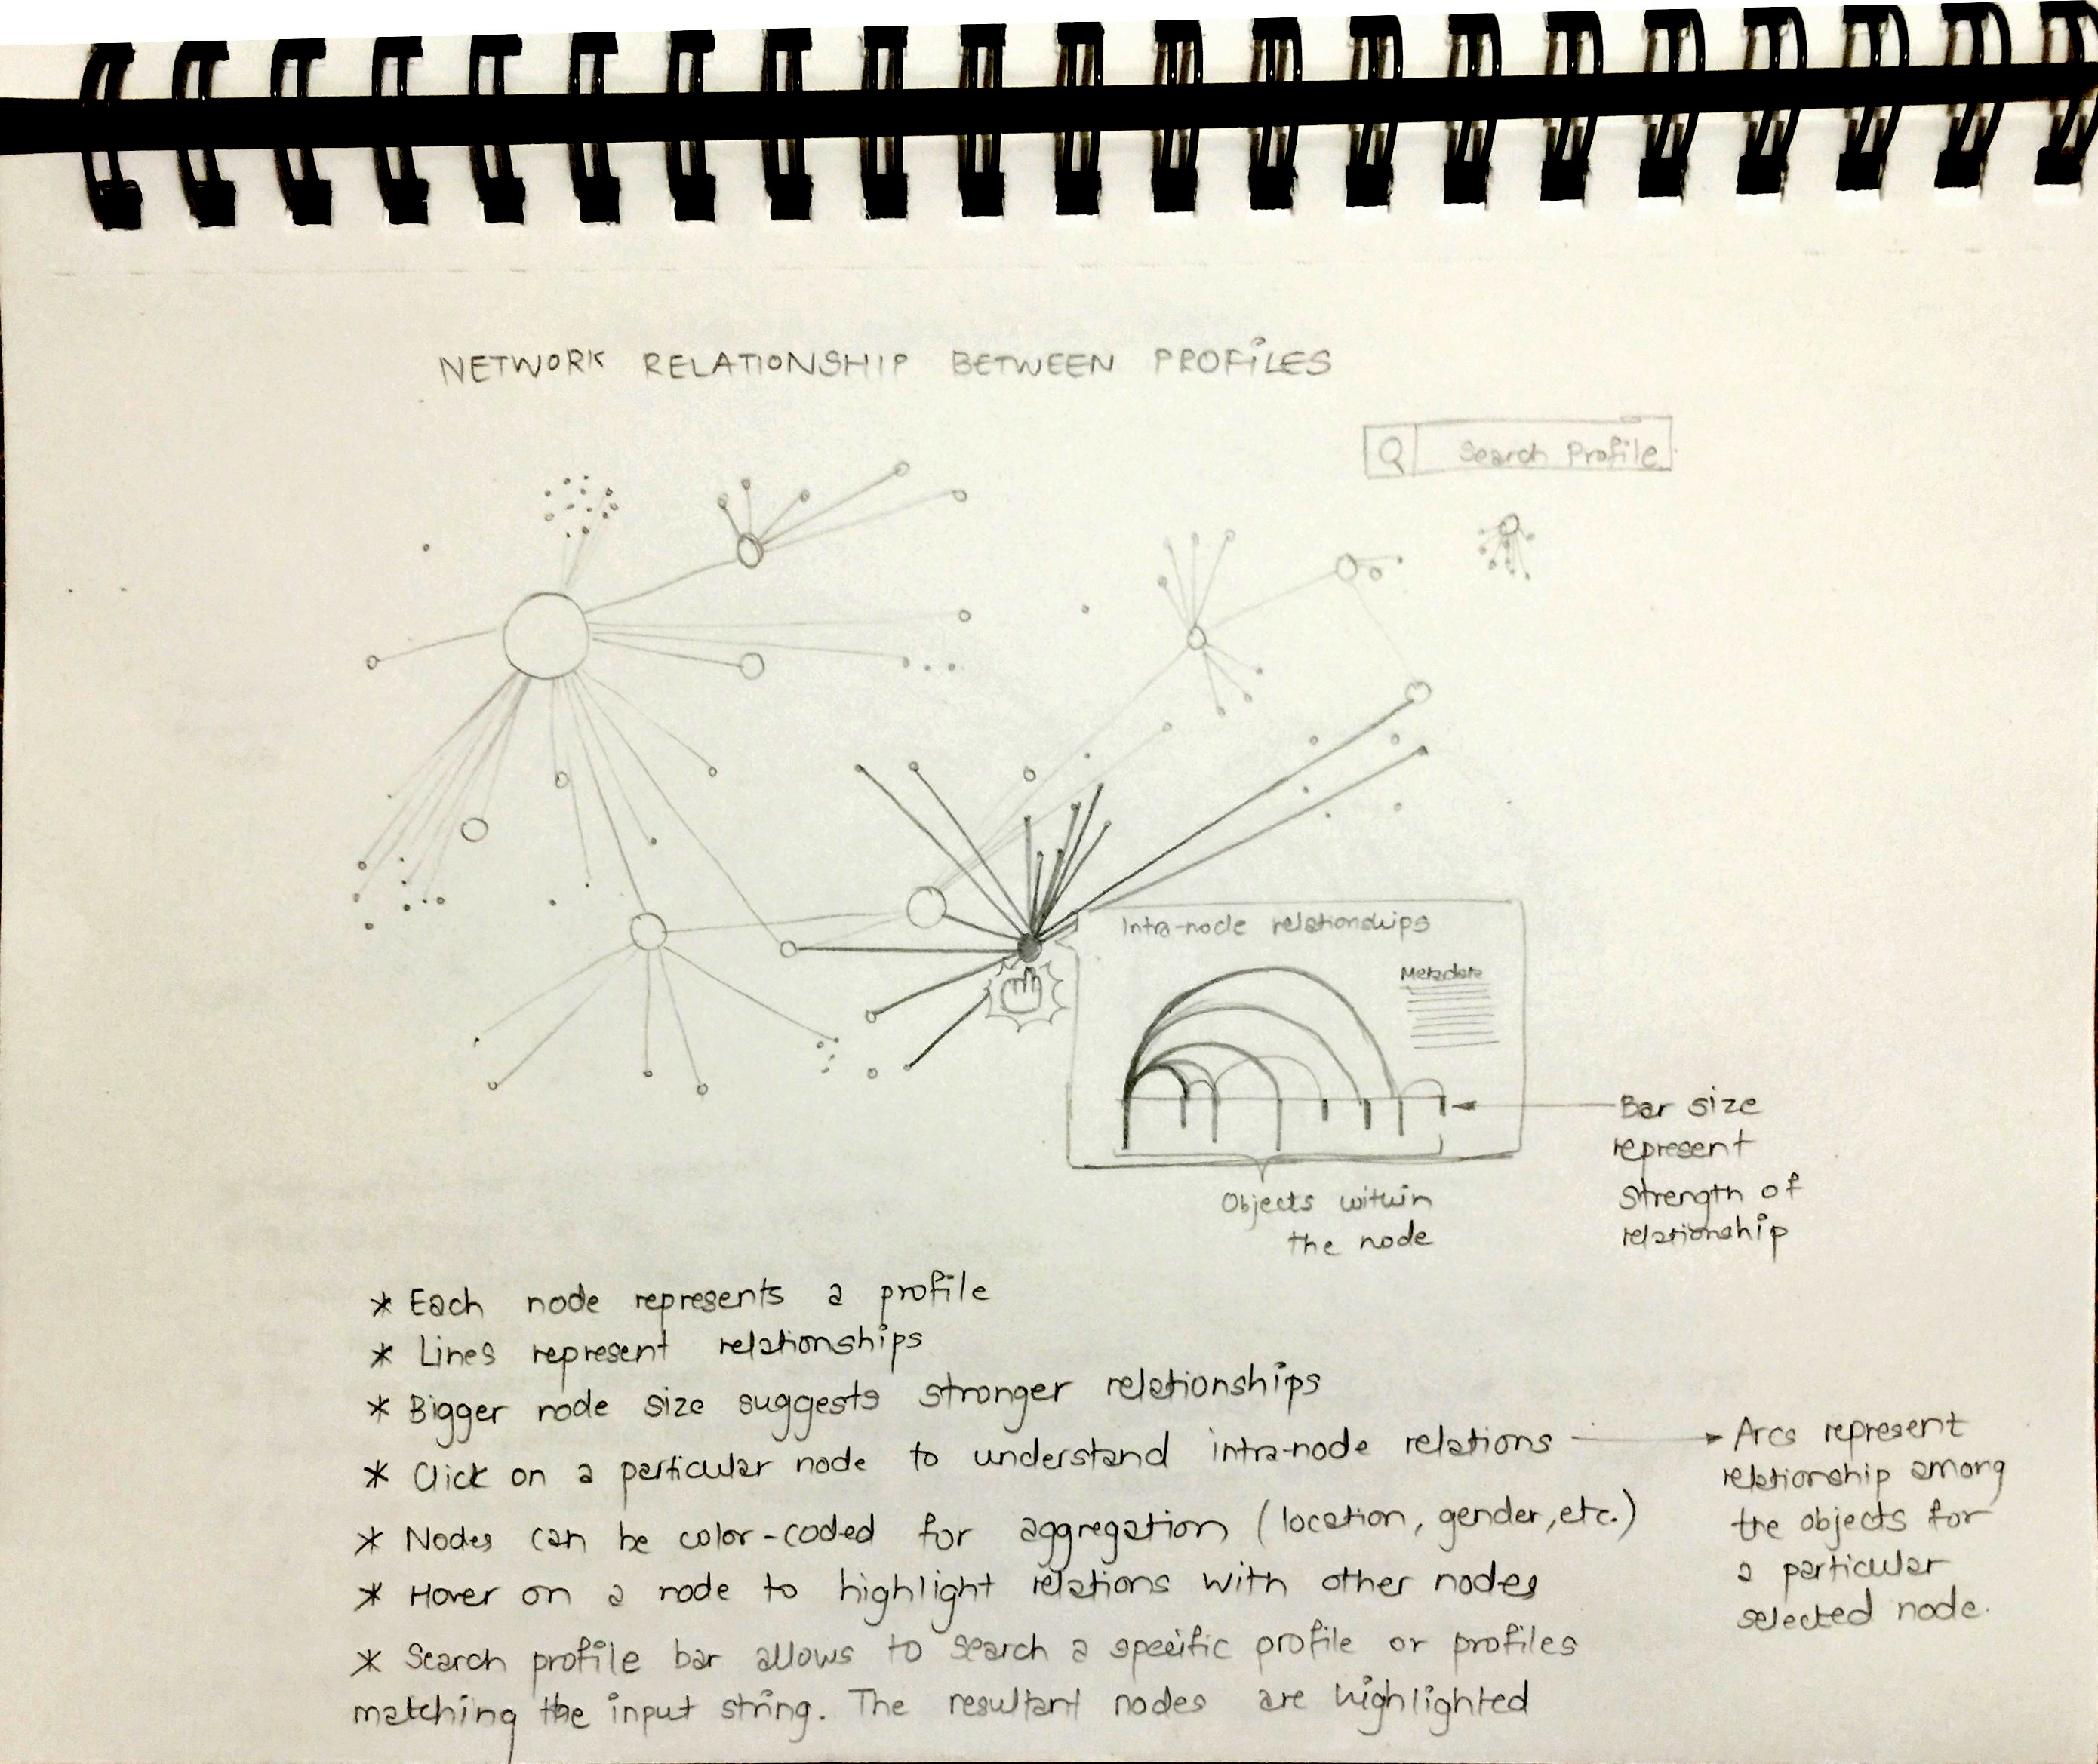 NETWORK RELATIONSHIP BETWEEN PROFILES
Search Profile
Intra-node relationships
Metadata
Bar size
represent
strength of
relationship
Objects within
the node
* Each node represents a profile
* Lines represent relationships
* Bigger node size suggests stronger relationships
* Click on a particular node to understand intra-node relations
Arcs represent
relationship among
the objects for
a particular
selected node.
* Nodes can be color-coded for aggregation (location, gender, etc.)
* Hover on a node to highlight relations with other nodes
* Search profile bar allows to search a specific profile or profiles
matching the input string. The resultant nodes are highlighted